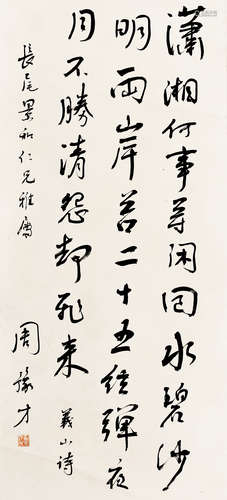 瀟湘何事等閑回水碧沙
明兩岸苔二十五絃彈夜
月不勝清怨却飛來
義山詩
長尾景和仁兄雅屬
周豫才